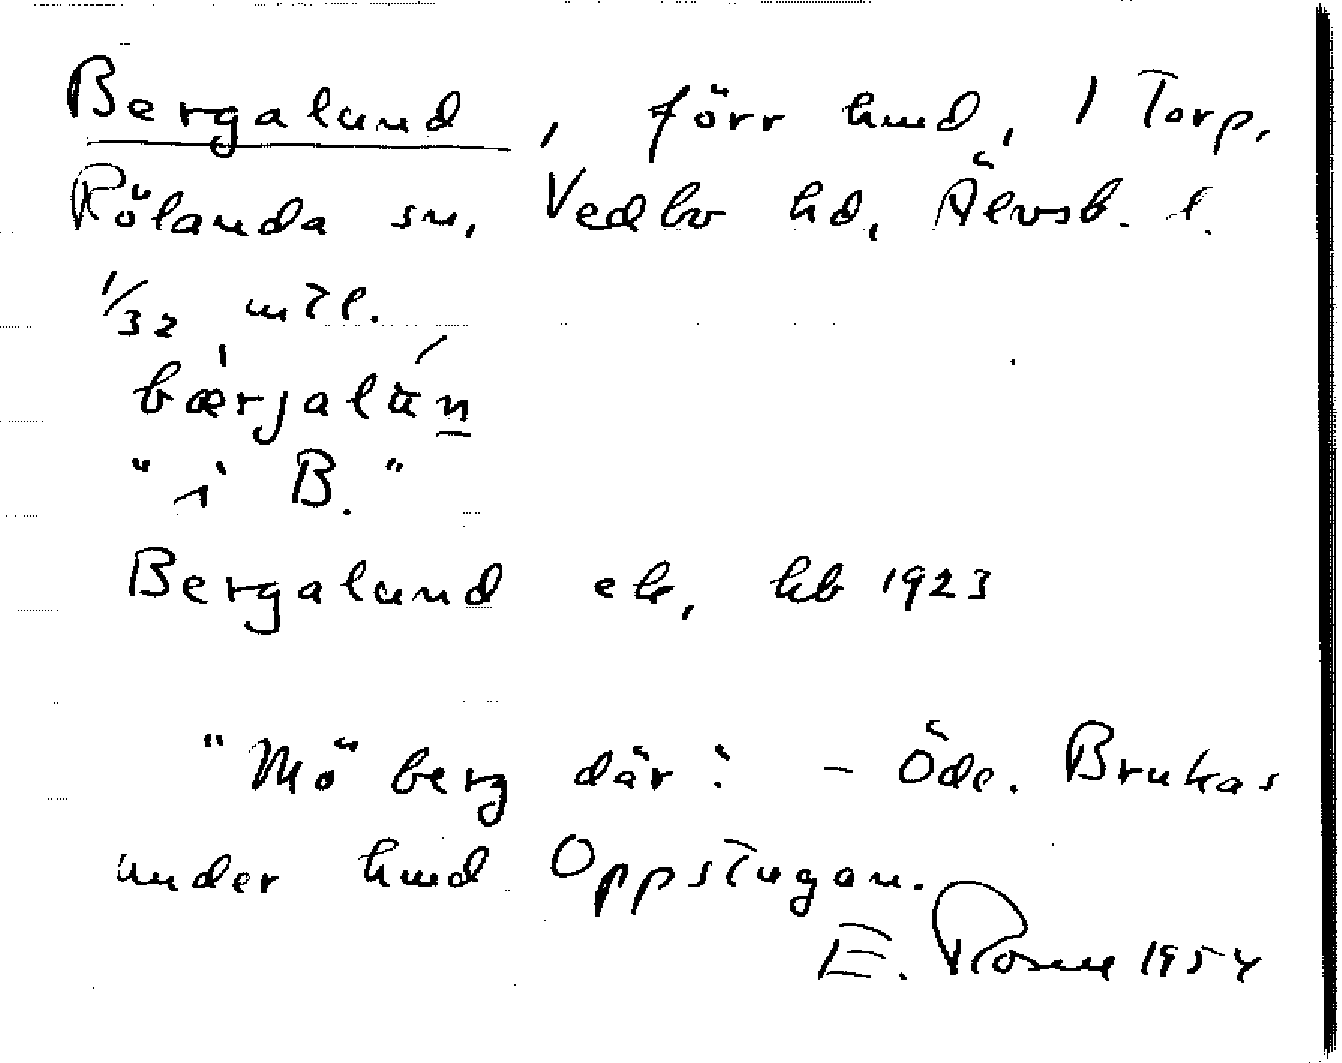 Bergalund, förr hmd, 1 Torp,
Rölanda sn, Vedbo hd, Älvsb. l.
1/32 mtl.
bærjalu̇n
"i B."
Bergalund eb, kb 1923
"Mo" berg där". - Öde. Brukas
under hmd Oppstugan.
E. Rosell 1954